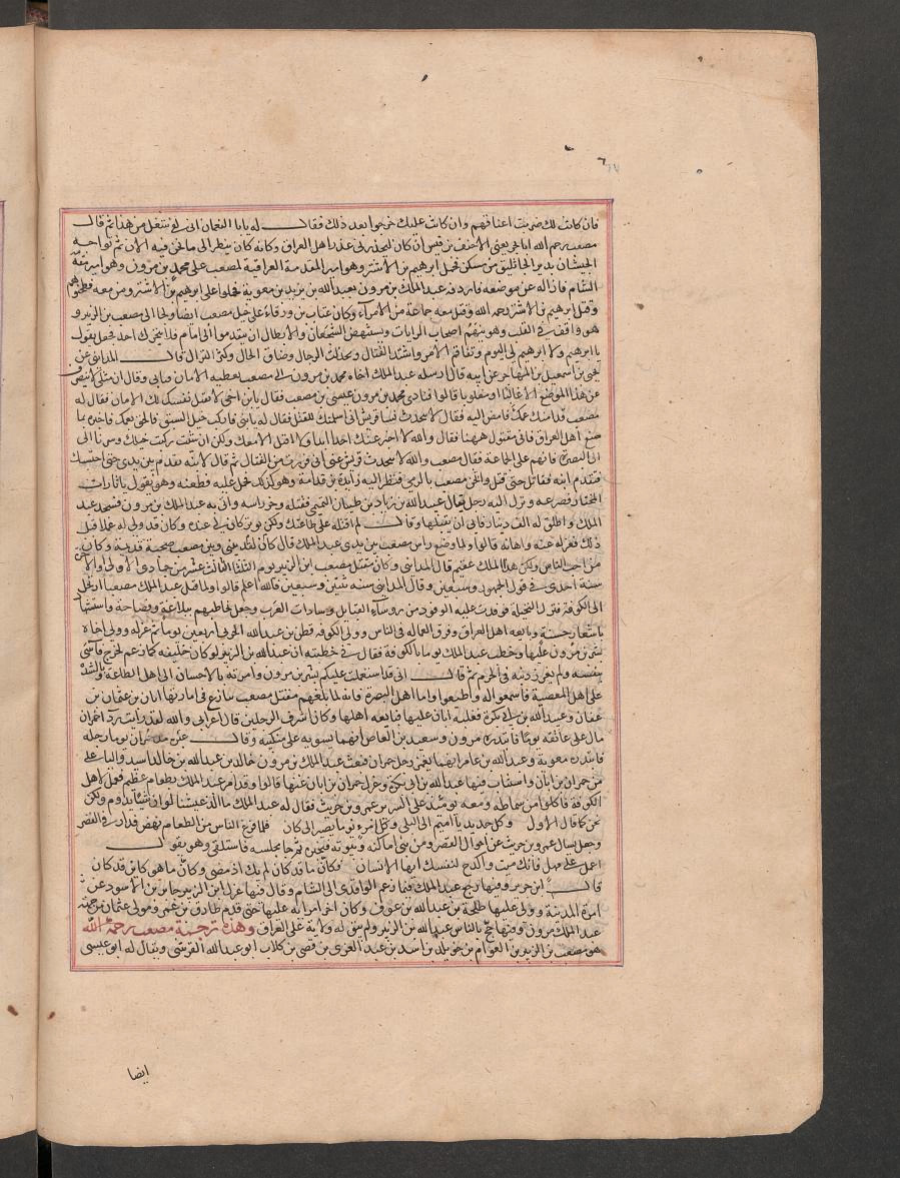 فان كانت لك ضربت اعناقهم وان كانت عليك خرجوا بعد ذلك فقال له يابا النعمان انى لفي شغل من هذا ثم قال
مصعب رحم الله ابا بحر يعنى الاحنف بن قيس ان كان ليحذرنى غدر اهل العراق وكانه كان ينظر الى ما نحن فيه الان ثم تواجه
الجيشان بدير الجاثليق من مسكن فحمل ابرهيم بن الاشتر وهو امير المقدمة العراقية لمصعب على محمد بن مرون وهو امير مقدمة
الشام فازاله عن موضعه فاردفه عبد الملك بن مرون بعبد الله بن يزيد بن معوية فحملوا على ابرهيم بن الاشتر ومن معه فطحنوهم
وقتل ابرهيم بن الاشتر رحمه الله وقتل معه جماعة من الامرآء وكان عتاب بن ورقاء على خيل مصعب ايضا ولجا الى مصعب بن الزبير و
هو واقف في القلب وهو ينهض اصحاب الرايات ويستنهض الشجعان والابطال ان يتقدموا الى امام فلا يتحرك احد فجعل يقول
يا ابرهيم ولا ابرهيم لي اليوم وتفاقم الامر واشتد القتال وتخاذلت الرجال وضاق الحال وكثر النزال قال المداينى عن
يحيى بن اسمعيل بن المهاجر عن ابيه قال ارسل عبد الملك اخاه محمد بن مرون الى مصعب يعطيه الامان فابى وقال ان مثلى لا ينصرف
عن هذا الموضع الا غالبا او مغلوبا قالوا فنادى محمد بن مرون عيسى بن مصعب فقال يا بن اخى لا تقتل نفسك لك الامان فقال له
مصعب قد امنك عمك فامض اليه فقال لا تتحدث نسا قريش انى اسلمتك للقتل فقال له يا بنى فاركب خيل السبق فالحق بعمك فاخبره بما
صنع اهل العراق فانى مقتول ههنا فقال والله لا اخبر عنك احدا ابدا ولا اقتل الا معك ولكن ان شئت ركبت خيلك وسرنا الى
الى البصرة فانهم على الجماعة فقال مصعب والله لا يتحدث قريش عنى انى فررت من القتال ثم قال لابنه تقدم بين يدى حتى احتسبك
فتقدم ابنه فقاتل حتى قتل واثخن مصعب بالرمى فنظر اليه زايدة بن قدامة وهو كذلك فحمل عليه فطعنه وهو يقول يا ثارات
المختار فصرعه ونزل اليه رجل يقال عبيد الله بن زياد بن ظبيان التميمى فقتله وحز راسه واتى به عبد الملك بن مرون فسجد عبد
الملك واطلق له الف دينار فابى ان يقبلها وقال لم اقتله على طاعتك ولكن بوتر كان لي عنده وكان قد ولى له عملا قبل
ذلك فعزله عنه واهانه قالوا ولما وضع راس مصعب بين يدى عبد الملك قال كان لقد بينى وبين مصعب صحبة قديمة وكان
من احب الناس ولكن هذا الملك عقيم قال المداينى وكان مقتل مصعب ابن الزبير يوم الثلثا الثالث عشر من جمادى الاولى او الاخرة
سنة احدى في قول الجمهور وسبعين وقال المداينى سنه ثنتين وسبعين فالله اعلم قالوا ولما قتل عبد الملك مصعبا ارتحل
الى الكوفة فنزل النخيلة فوفدت عليه الوفود من روساء القبايل وسادات العرب وجعل يخاطبهم ببلاغة وفصاحة واستشهاد
باشعار حسنة وبايعه اهل العراق وفرق العمالة في الناس وولى الكوفه قطن بن عبد الله الحرثى اربعين يوما ثم عزله وولى اخاه
بشر بن مرون عليها وخطب عبد الملك يوما بالكوفة فقال في خطبته ان عبد الله بن الزبير لو كان خليفه كما زعم لخرج فآسى
بنفسه ولم يغرز ذنبه في الحرم ثم قال انى قد استعملت عليكم بشر بن مرون وامرته بالاحسان الى اهل الطاعة والشدة
على اهل المعصية فاسمعوا له واطيعوا واما اهل البصرة فانه لما بلغهم مقتل مصعب تنازع في امارتها ابان بن عثمان بن
عفان وعبيد الله بن ابي بكرة فغلبه ابان عليها فبايعه اهلها وكان اشرف الرجلين قال اعرابى والله لقد رايت ردآ ابان
مال على عاتقه يوما فابتدره مرون وسعيد بن العاص ايهما يسويه على منكبيه وقال غيره مد ابان يوما رجله
فابتدره معوية وعبد الله بن عامر ايهما يغمز رجل حمران فبعث عبد الملك بن مرون خالد بن عبد الله بن خالد اسيد واليا على
من حمران بن ابان واستناب فيها عبيد الله بن ابى بكرة وعزل حمران بن ابان عنها قالوا وقد امر عبد الملك بطعام عظيم فعمل لاهل
الكوفة فاكلوا من سماطه ومعه يومئذ على السرير عمرو بن حريث فقال له عبد الملك ما الذ عيشنا لو ان شيئا يدوم ولكن
نحن كما قال الاول وكل جديد يا اميم الى البلى وكل امرء يوما يصير الى كان فلما فرغ الناس من الطعام نهض فدار في القصر
وجعل يسال عمرو بن حريث عن احوال القصر ومن بنى اماكنه وبيوته فيخبره ثم جا مجلسه فاستلقى وهو يقول
اعمل على مهل فانك ميت واكدح لنفسك ايها الانسان فكان ما قد كان لم يك اذ مضى وكان ما هو كاين قد كان
قال ابن جرير وفيها رجع عبد الملك فيما زعم الواقدى الى الشام وقال فيها عزل ابن الزبير جابر بن الاسود عن
امرة المدينة وولى عليها طلحة بن عبد الله بن عوف وكان اخر امرايه عليها حتى قدم طارق بن عمرو مولى عثمان من جهة
عبد الملك بن مرون وفيها حج بالناس عبد الله بن الزبير ولم يبق له ولاية على العراق وهذه ترجمة مصعب رحمه الله
هو مصعب بن الزبير بن العوام بن خويلد بن اسد بن عبد العزى بن قصى بن كلاب ابو عبد الله القرشى ويقال له ابو عيسى
ايضا